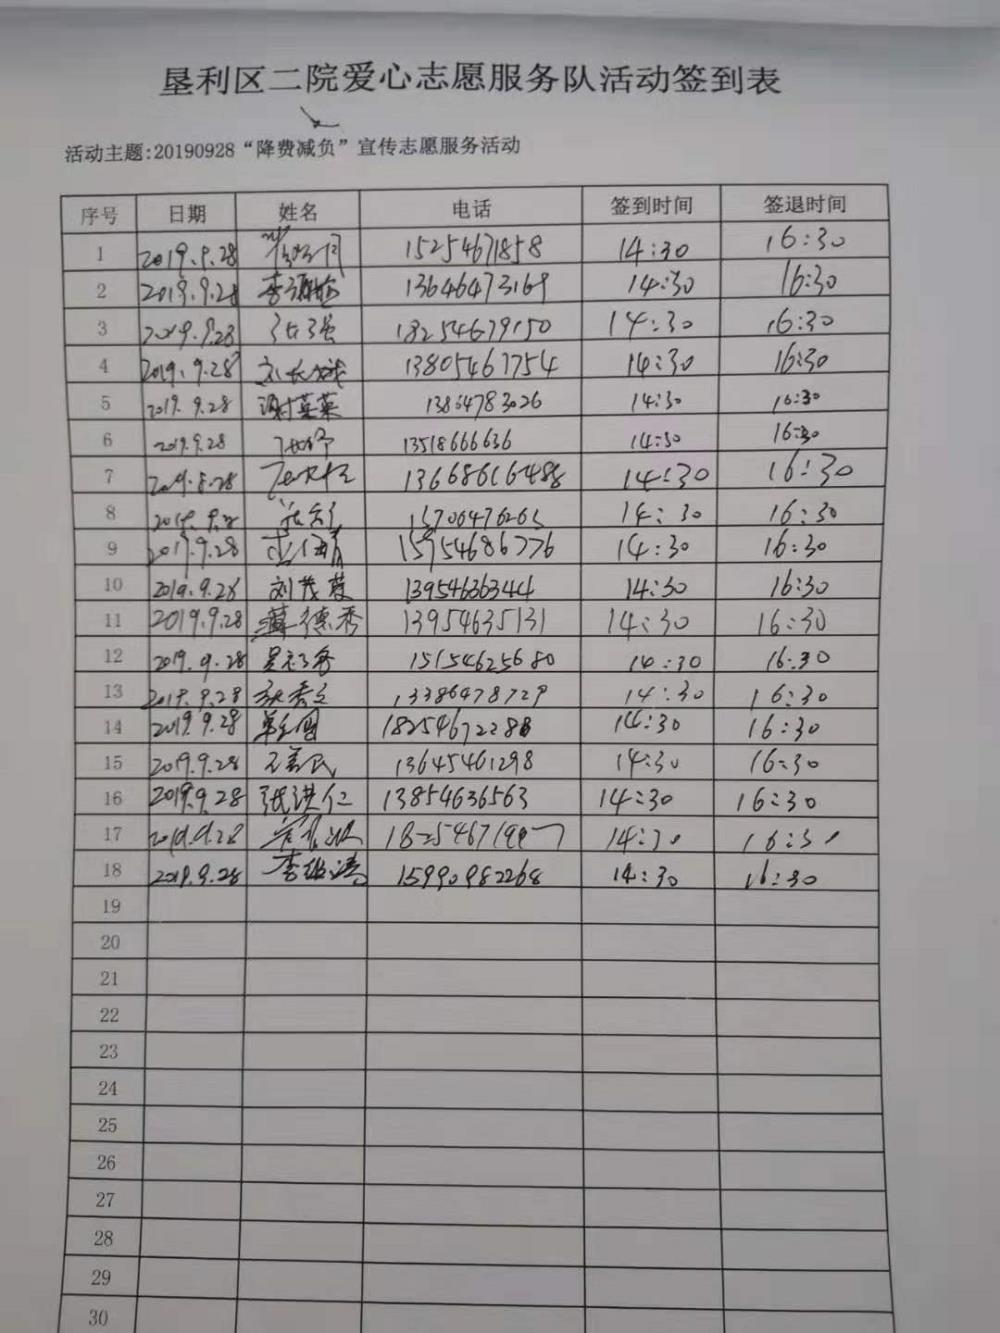 垦利区二院爱心志愿服务队活动签到表
活动主题:20190928“降费减负”宣传志愿服务活动
序号 日期 姓名 电话 签到时间 签退时间
1 2019.9.28 15254671858 14:30 16:30
2 2019.9.28 13646473169 14:30 16:30
3 2019.9.28 张强 18254679150 14:30 16:30
4 2019.9.28 13805461754 14:30 16:30
5 2019.9.28 谢英英 13864783026 14:30 16:30
6 2019.9.28 13518666636 14:30 16:30
7 13668616488 14:30 16:30
8 2019.9.28 15706476265 14:30 16:30
9 2019.9.28 15954686776 14:30 16:30
10 2019.9.28 刘茂葭 13954636344 14:30 16:30
11 2019.9.28 薛德秀 13954635131 14:30 16:30
12 2019.9.28 15154625680 14:30 16:30
13 2019.9.28 13386478729 14:30 16:30
14 2019.9.28 18254672288 14:30 16:30
15 2019.9.28 王美民 13645461298 14:30 16:30
16 2019.9.28 张洪仁 13854636563 14:30 16:30
17 2019.9.28 14:30 16:30
18 2019.9.28 15990982268 14:30 16:30
19
20
21
22
23
24
25
26
27
28
29
30